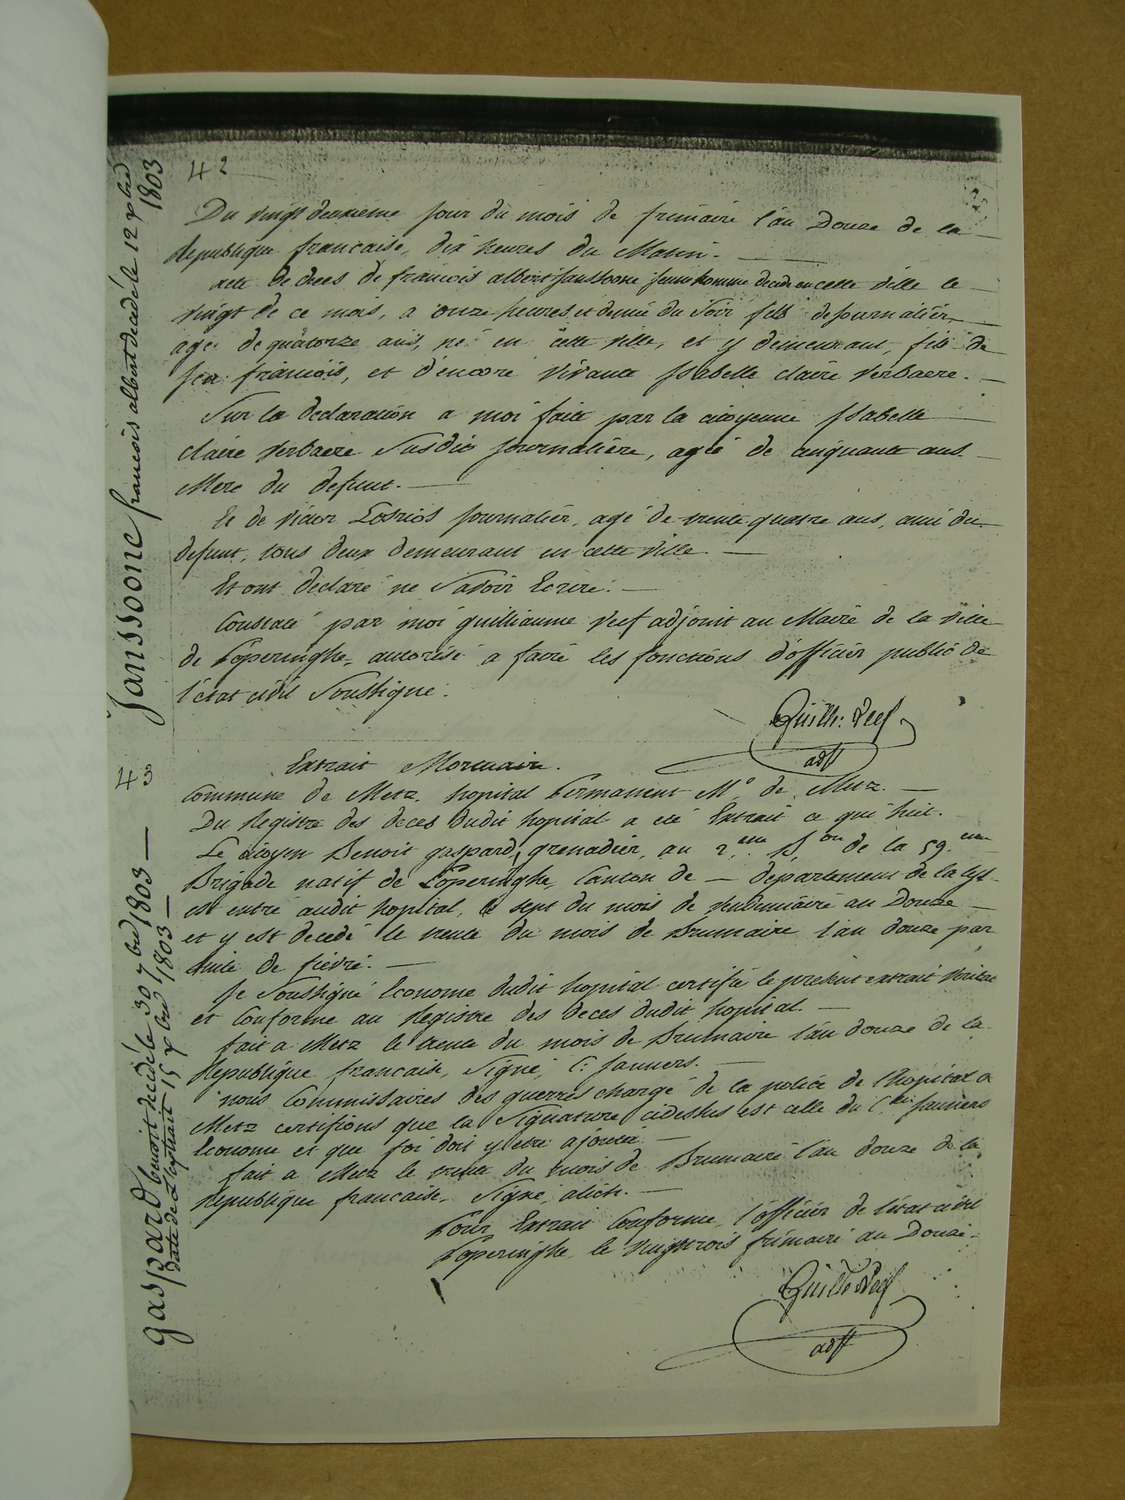 42
Du vingt deuxieme jour du mois de frimaire l'an Douze de la
Republique francaise, dix heures du Matin.
acte de deces de francois albert Janssoone jeune homme decede en cette ville le
vingt de ce mois, a onze heures et demie du Soir journalier
agé de quatorze ans, né en cette ville, et y demeurant, fils de
feu francois, et d'encore vivante Isabelle claire Verbaere.
Sur la declaration a moi faite par la citoyenne Isabelle
claire Verbaere Susdit journalière, agée de cinquante ans
Mere du defunt.
Et de journalier, agé de trente quatre ans, ami du
defunt, tous deux demeurant en cette ville.
Et ont declaré ne Savoir Ecrire.
Constaté par moi guilliaume Reef adjoint au Maire de la ville
de Poperinghe, autorisé a faire les fonctions d'officier public de
l'etat civil Soussigné.
Guilh: Reef
adjt
Janssoone francois albert decedé le 12 xbre 1803
43
Extrait Mortuaire.
Commune de Metz. hopital Permanent Mre de Metz.
Du Registre des deces dudit hopital a eté Extrait ce qui suit.
Le citoyen Benoit gaspard, grenadier, au 2eme Bon de la 59eme
Brigade natif de Poperinghe, Canton de — departement de la Lys
est entré audit hopital, le sept du mois de Vendemiaire an Douze
et y est decedé le trente du mois de Brumaire l'an douze par
suite de fievre.
Je Soussigné Econome dudit hopital certifie le present extrait veritable
et Conforme au Registre des deces dudit hopital.
fait a Metz le trente du mois de Brumaire l'an douze de la
Republique francaise, Signé,
nous Commissaires des guerres chargé de la police de l'hopital a
Metz certifions que la Signature cidessus est celle du
Econome et que foi doit y etre ajoutée
fait a Metz le trente du mois de Brumaire l'an douze de la
Republique francaise. Signé,
Pour Extrait Conforme, l'officier de l'etat civil
Poperinghe, le vingt trois frimaire an Douze.
Guilh: Reef
adjt
gaspard benoit decedé le 30 7bre 1803
Date de L'extrait 15 xbre 1803